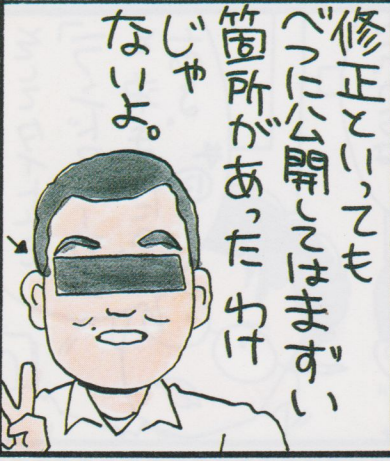 修正といっても
べつに公開してはまずい
箇所があったわけ
じゃ
ないよ。